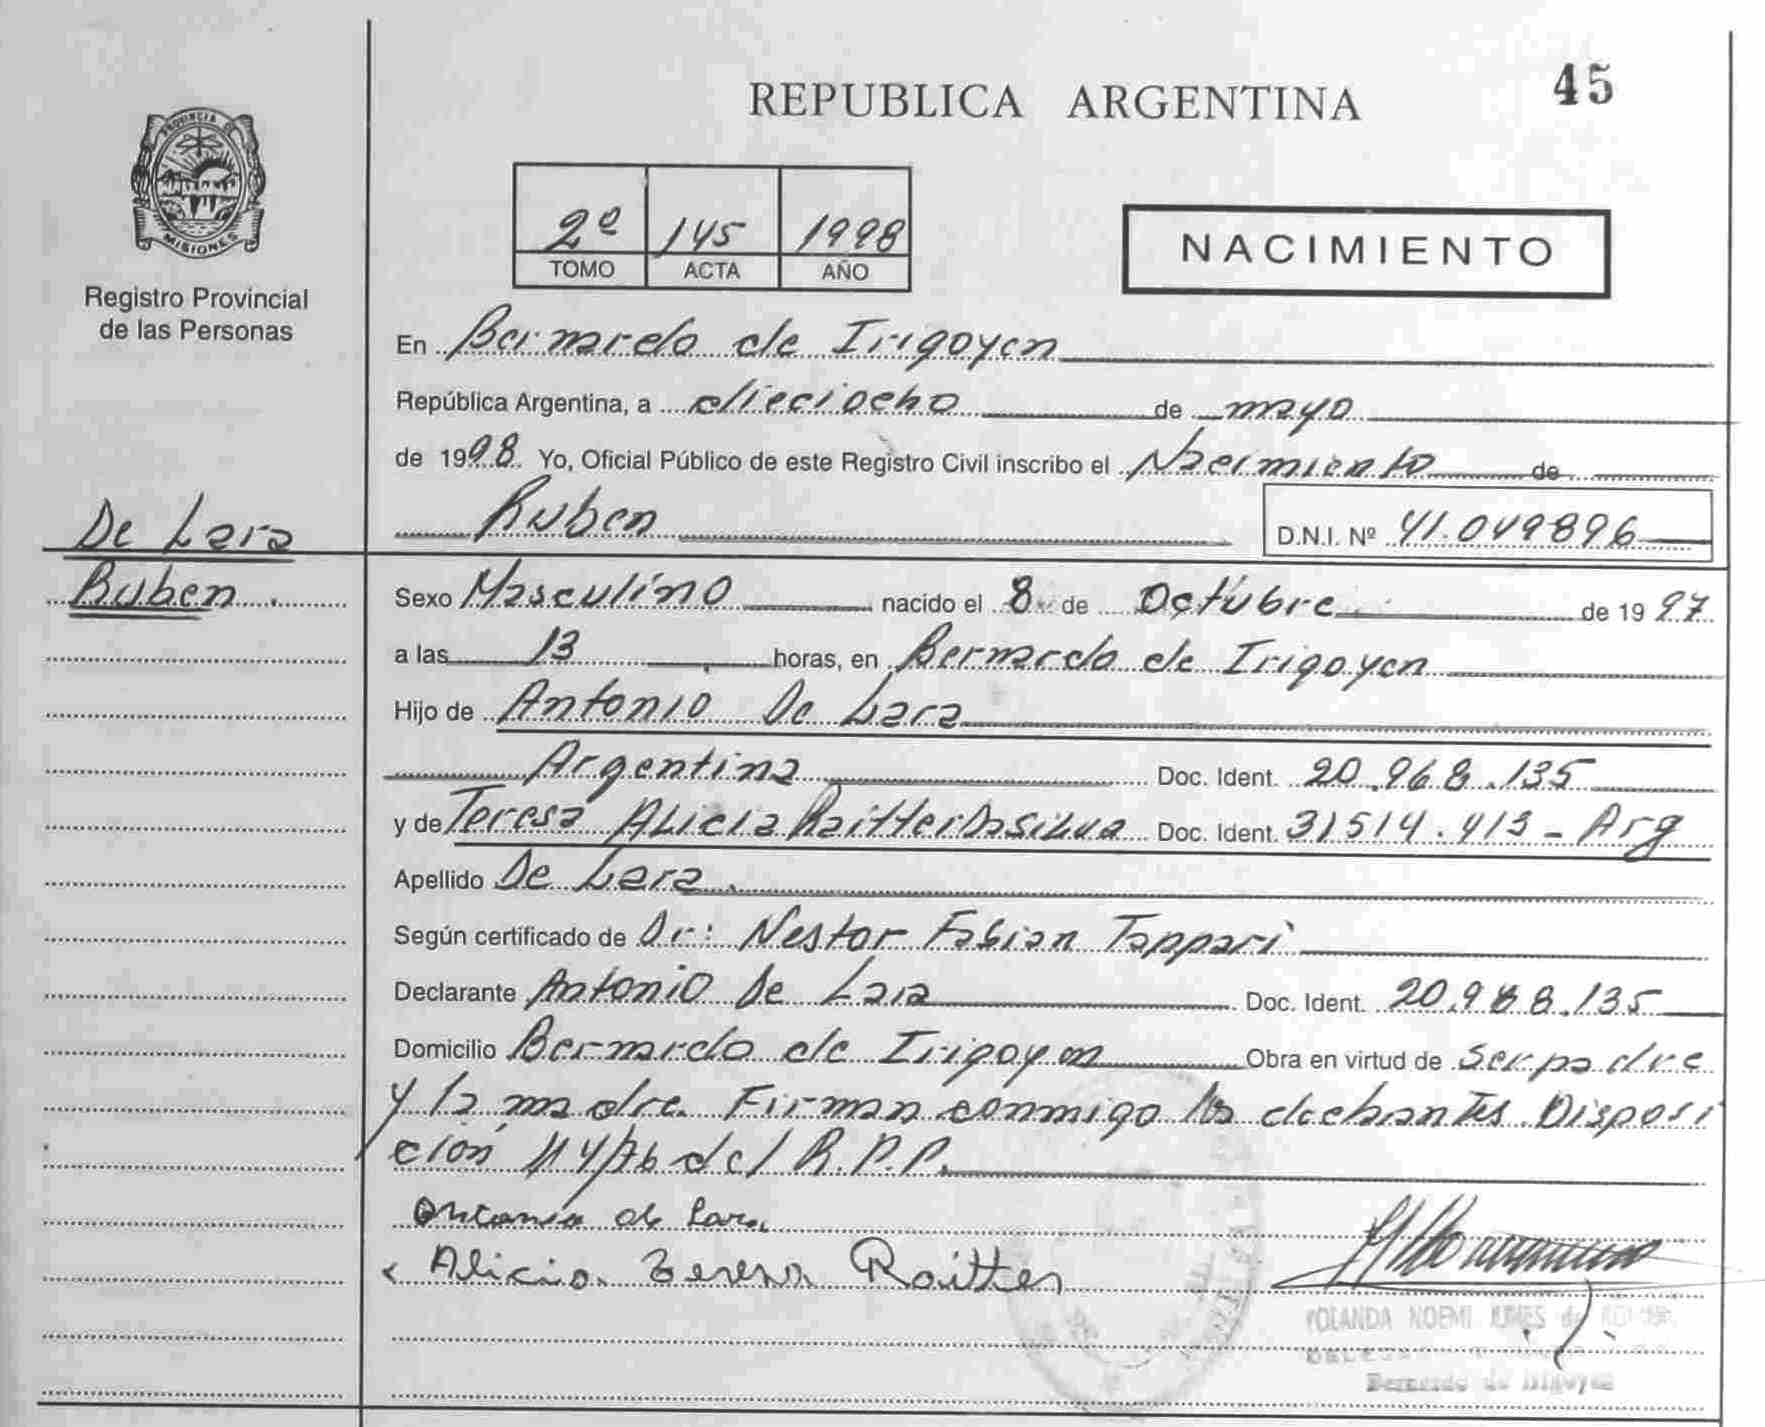 45
REPUBLICA ARGENTINA
PROVINCIA DE
MISIONES
Registro Provincial
de las Personas
2º 145 1998
TOMO ACTA AÑO
NACIMIENTO
En Bernardo de Irigoyen
República Argentina, a dieciocho de mayo
de 1998. Yo, Oficial Público de este Registro Civil inscribo el Nacimiento de
Ruben D.N.I. Nº 41.049896
De Lara
Ruben
Sexo Masculino nacido el 8 de Octubre de 1997
a las 13 horas, en Bernardo de Irigoyen
Hijo de Antonio De Lara
Argentina Doc. Ident. 20.968.135
y de Teresa Alicia Raitter Dasilva Doc. Ident. 31514.413 - Arg
Apellido De Lara.
Según certificado de Dr: Nestor Fabian Tappari
Declarante Antonio De Lara Doc. Ident. 20.988.135
Domicilio Bernardo de Irigoyen Obra en virtud de Ser padre
y la madre. Firman conmigo los declarantes. Disposi
ción 114/76 del R.P.P.
Antonio de Lara
Alicia Teresa Raitter
YOLANDA NOEMI
Bernardo de Irigoyen